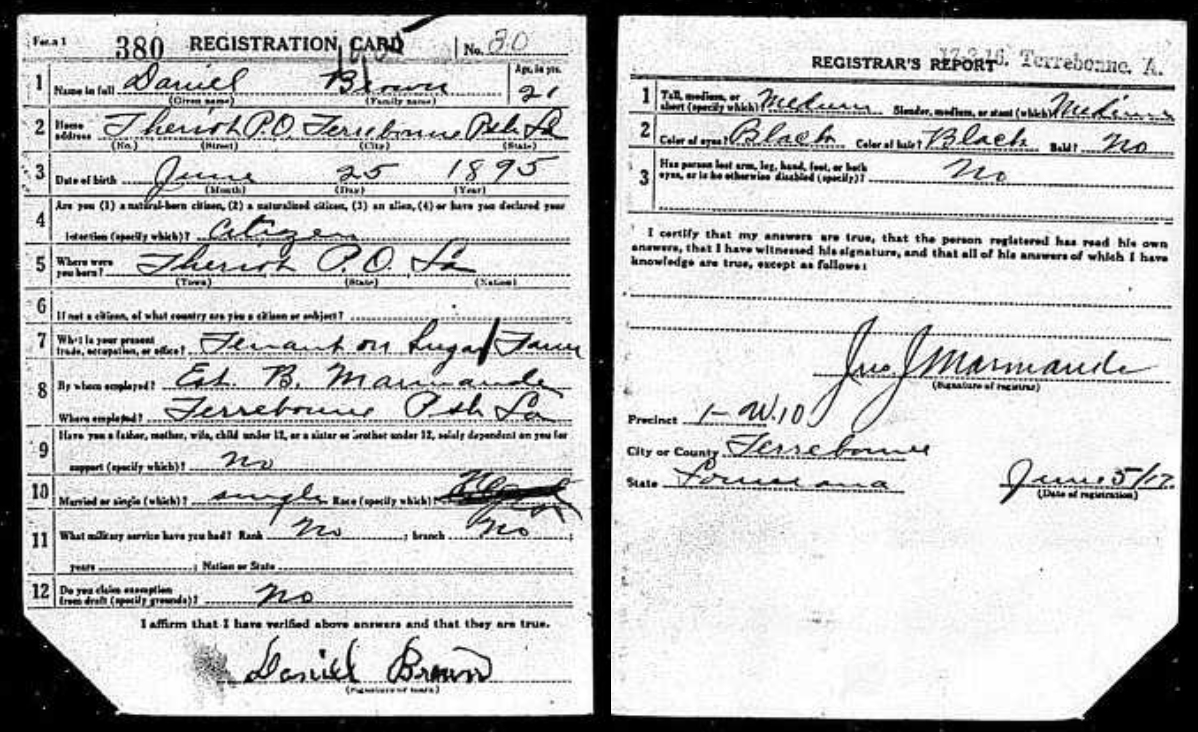 Form 1 380 REGISTRATION CARD No. 30
1 Name in full Daniel Brown Age, in yrs. 21
(Given name) (Family name)
2 Home address Theriot P.O. Terrebonne Psh La
(No.) (Street) (City) (State)
3 Date of birth June 25 1895
(Month) (Day) (Year)
4 Are you (1) a natural-born citizen, (2) a naturalized citizen, (3) an alien, (4) or have you declared your
intention (specify which)? Citizen
5 Where were you born? Theriot P.O. La
(Town) (State) (Nation)
6 If not a citizen, of what country are you a citizen or subject?
7 What is your present trade, occupation, or office? Tenant on Sugar Farm
8 By whom employed? Est. B. Marmande
Where employed? Terrebonne Psh La
9 Have you a father, mother, wife, child under 12, or a sister or brother under 12, solely dependent on you for
support (specify which)? No
10 Married or single (which)? single Race (specify which)?
11 What military service have you had? Rank No ; branch No ;
years ; Nation or State
12 Do you claim exemption from draft (specify grounds)? No
I affirm that I have verified above answers and that they are true.
Daniel Brown
(Signature or mark)
REGISTRAR'S REPORT 17-3-16. Terrebonne. A.
1 Tall, medium, or short (specify which)? Medium Slender, medium, or stout (which)? Medium
2 Color of eyes? Black Color of hair? Black Bald? No
3 Has person lost arm, leg, hand, foot, or both eyes, or is he otherwise disabled (specify)? No
I certify that my answers are true, that the person registered has read his own
answers, that I have witnessed his signature, and that all of his answers of which I have
knowledge are true, except as follows:
Jno J Marmande
(Signature of registrar)
Precinct 1-W.10
City or County Terrebonne
State Louisiana June 5/17
(Date of registration)